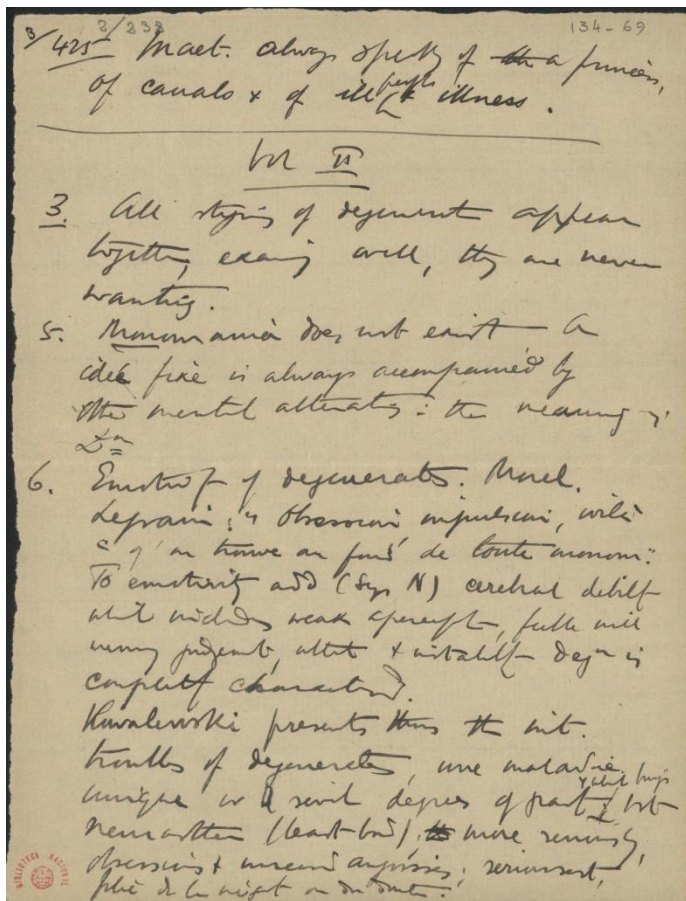 3/425 Maet. always speaks of a princess,
of canals & of ill people & illness.
2/232
134-69
Vol II
3. All stigmas of degenerate appear
together, examine well, they are never
wanting.
5. Monomania does not exist – A
idée fixe is always accompanied by
other mental alterations: the meaning of
6. Emotivity of degenerates. Morel.
Legrain: "Obsession, impulsion, voilà
c q'on trouve au fond de toute monom."
To emotivity add (Says N) cerebral debility
which includes weak , feeble will
memory, judgement, & instability Degn is
completely characterised.
Kowalewski presents thus the
troubles of degenerates, une maladie
unique in degrees of gravity
neurasthen (least bad), more serious,
obsessions & angoisses, seriousest,
folie de la négat ou du doute.
BIBLIOTECA NACIONAL